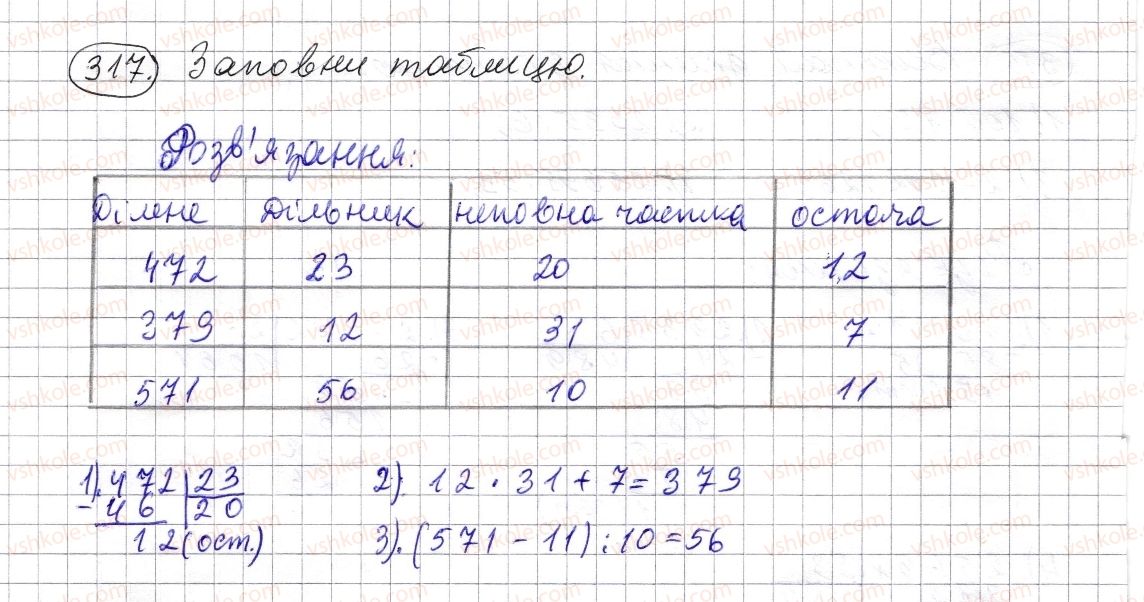 317. Заповни таблицю.
Розв'язання:
Ділене Дільник неповна частка остача
472 23 20 12
379 12 31 7
571 56 10 11
1). 472 | 23
- 46 | 20
12 (ост.)
2). 12 · 31 + 7 = 379
3). (571 - 11) : 10 = 56
vshkole.com